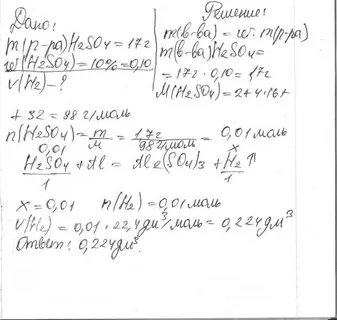 Дано:
m(р-ра)H2SO4=17г
w(H2SO4)=10%=0,10
V(H2)-?
Решение:
m(в-ва)=w·m(р-ра)
m(в-ва)H2SO4=
=17г·0,10=1,7г
M(H2SO4)=2+4·16+
+32=98г/моль
n(H2SO4)=m/M=1,7г/98г/моль=0,01моль
0,01 x
H2SO4+Al=Al2(SO4)3+H2↑
1 1
x=0,01 n(H2)=0,01моль
V(H2)=0,01·22,4дм³/моль=0,224дм³
Ответ: 0,224дм³.